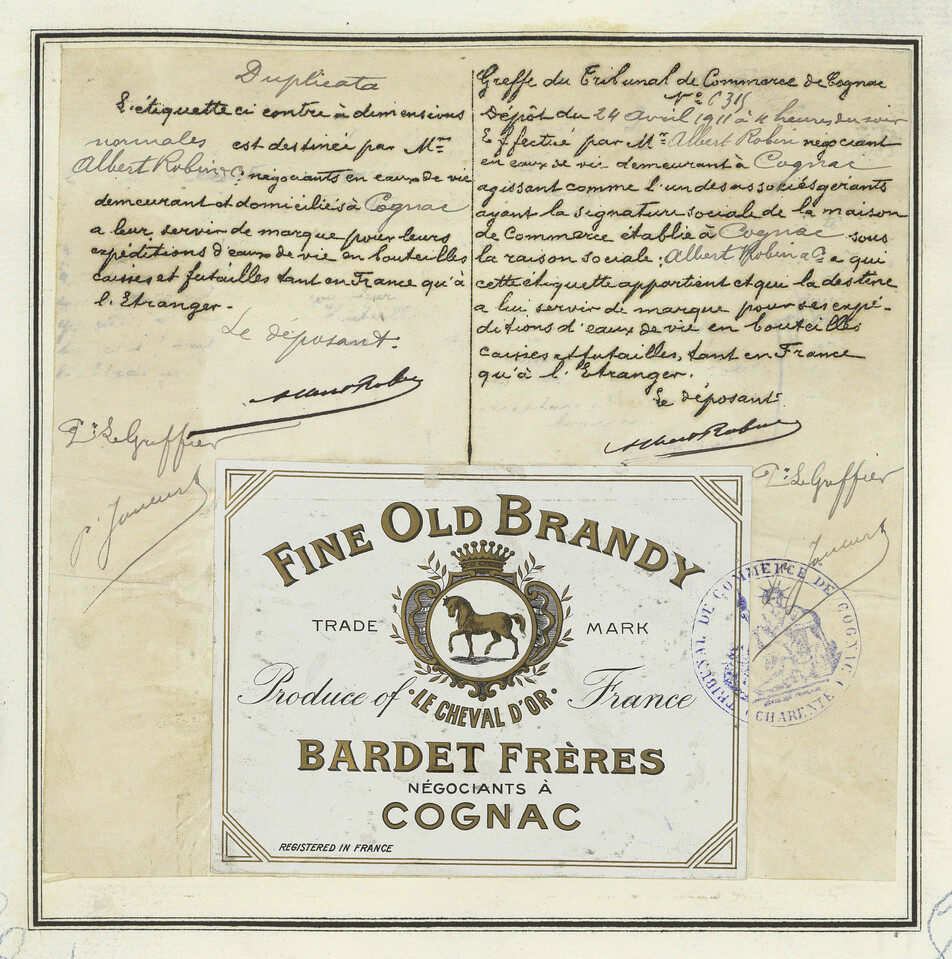 Duplicata
L'étiquette ci contre à dimensions
normales est destinée par Mrs
Albert Robin & Cie négociants en eaux de vie
demeurant et domiciliés à Cognac
a leur servir de marque pour leurs
expéditions d'eaux de vie en bouteilles
caisses et futailles tant en France qu'à
l'Etranger.
Le déposant.
Albert Robin
Pr Le Greffier
Greffe du Tribunal de Commerce de Cognac
Dépôt du 24 Avril 1911 à 4 heures du soir
Effectué par Mr Albert Robin négociant
en eaux de vie demeurant à Cognac
agissant comme l'un des associés gérants
ayant la signature sociale de la maison
de Commerce établie à Cognac sous
la raison sociale: Albert Robin & Cie a qui
cette étiquette appartient et qui la destine
a lui servir de marque pour ses expé-
ditions d'eaux de vie en bouteilles
caisses et futailles, tant en France
qu'à l'Etranger.
Le déposant
Albert Robin
Pr Le Greffier
FINE OLD BRANDY
TRADE MARK
Produce of France
LE CHEVAL D'OR
BARDET FRÈRES
NÉGOCIANTS À
COGNAC
REGISTERED IN FRANCE
TRIBUNAL DE COMMERCE DE COGNAC
(CHARENTE)